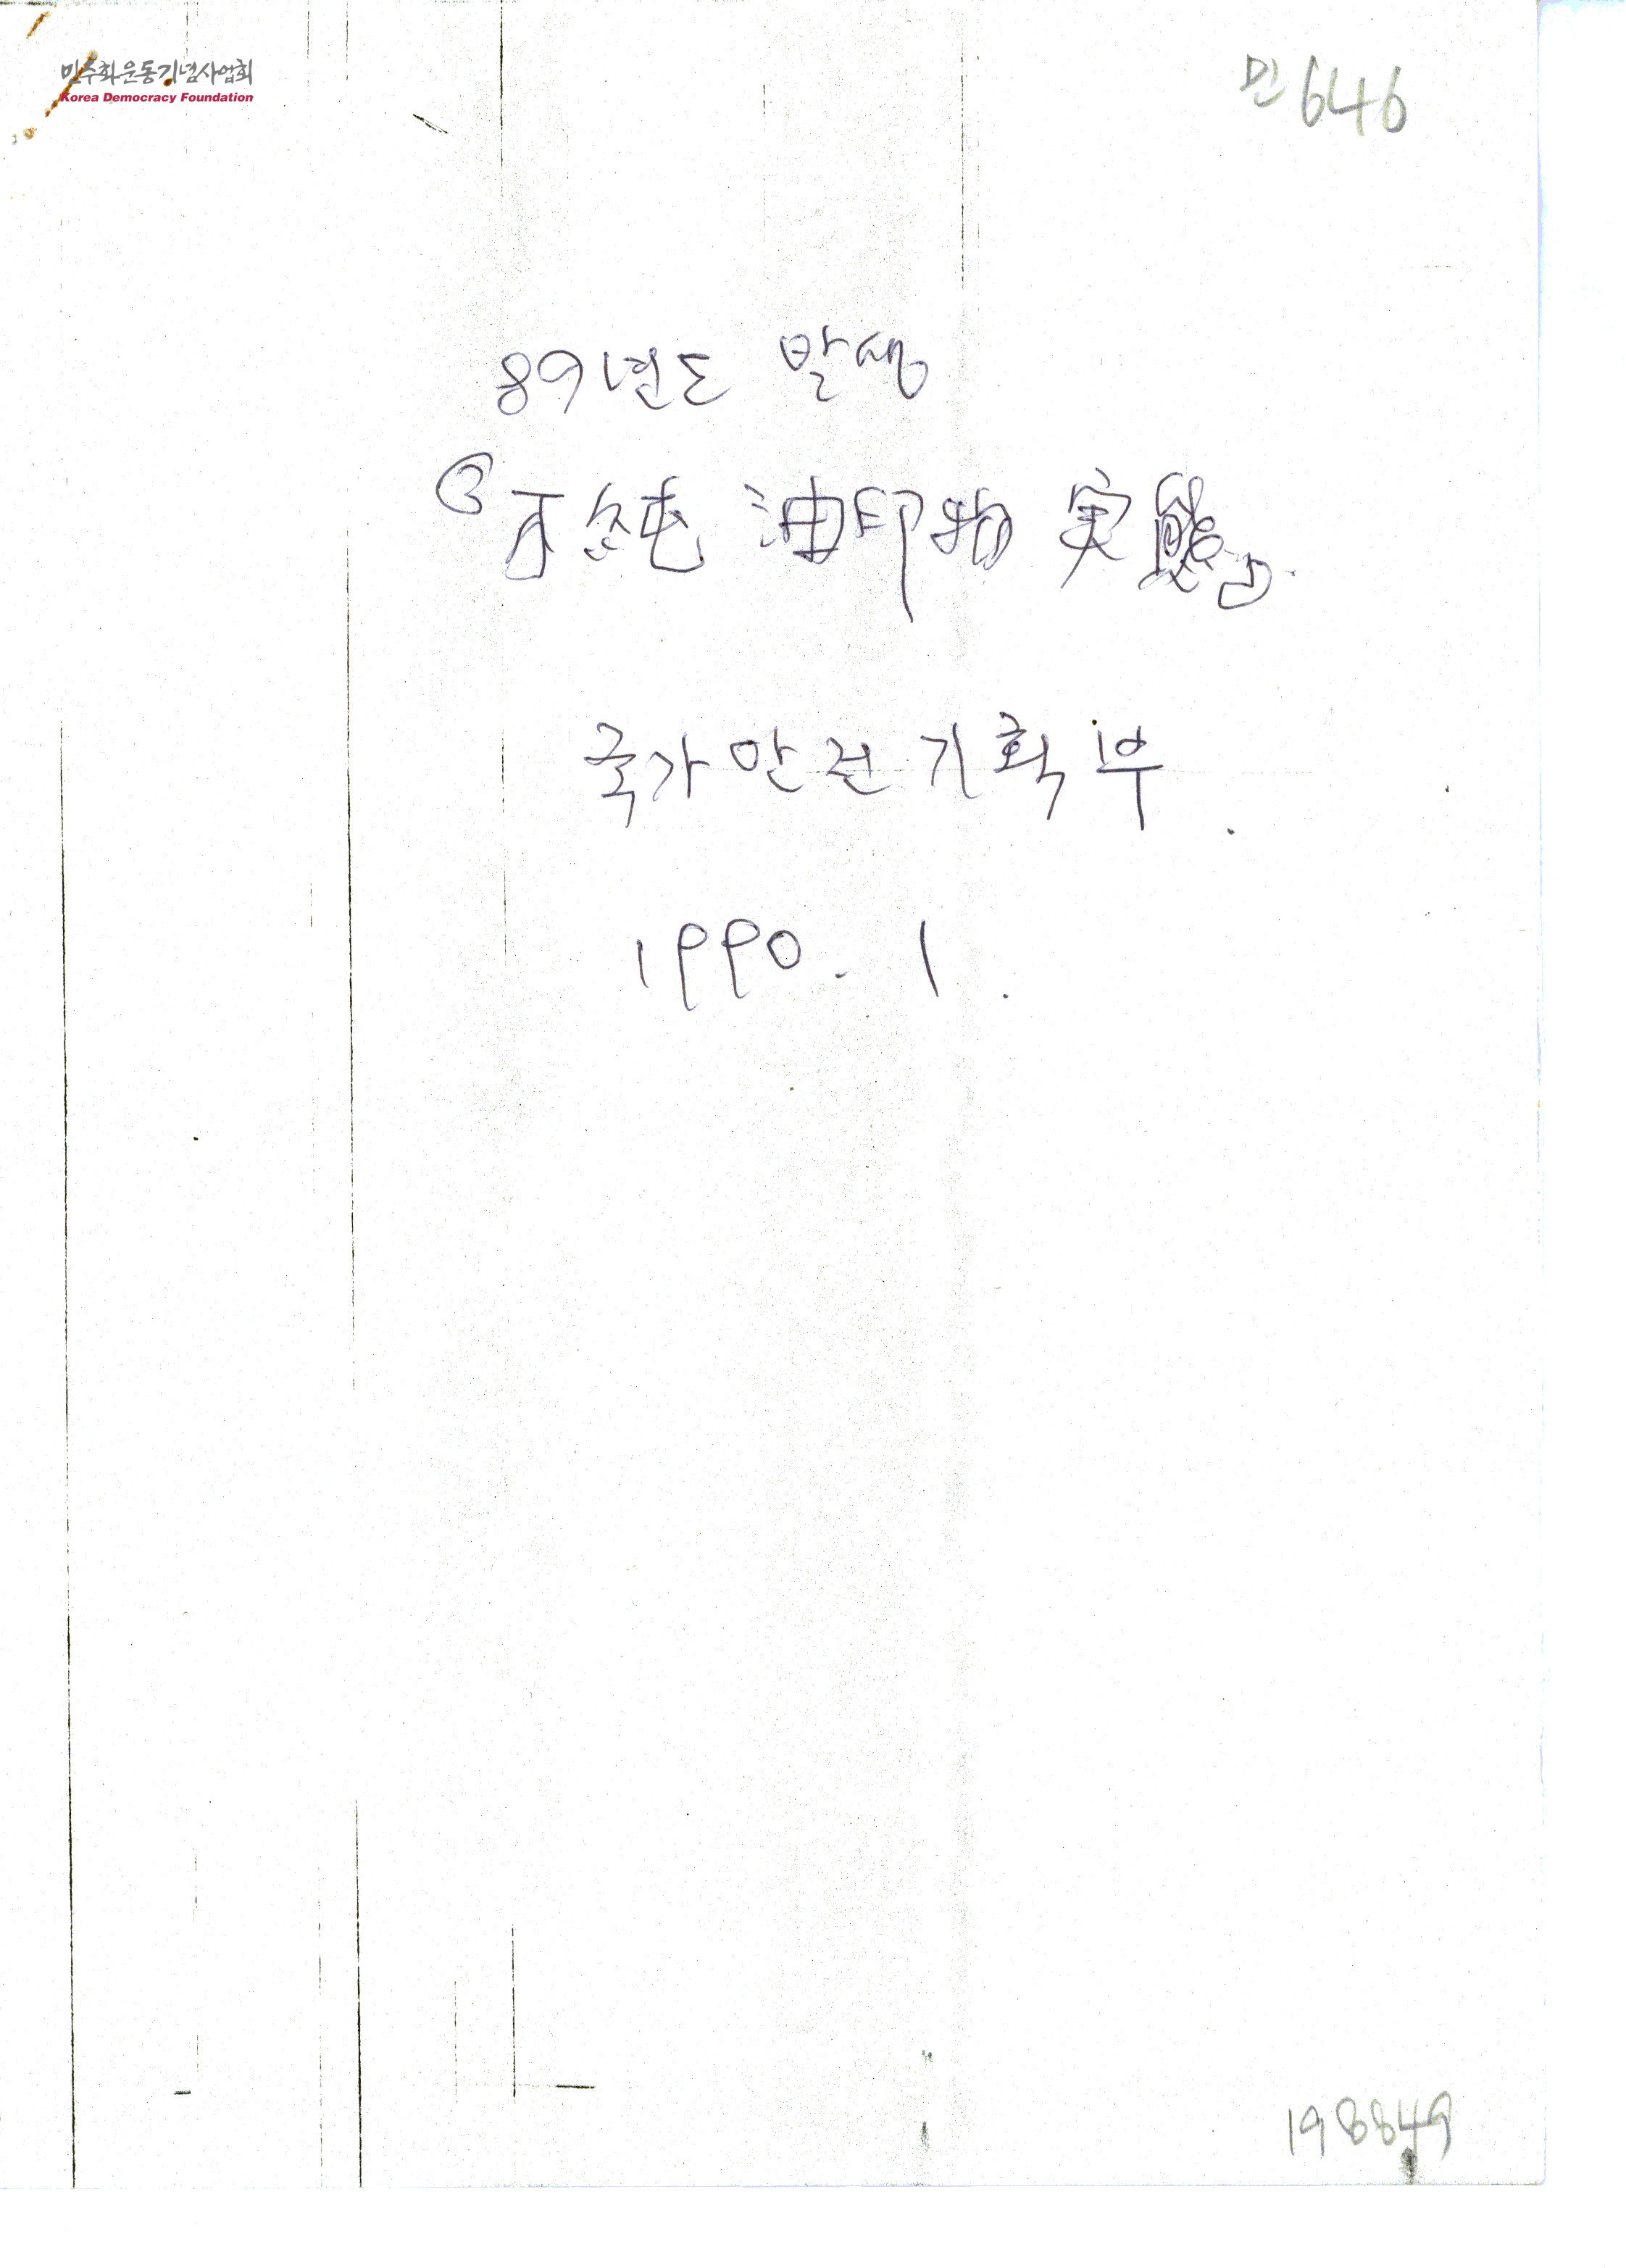 민주화운동기념사업회
Korea Democracy Foundation
민 646
89년도 발생
不純 油印物 実態
국가안전기획부
1990. 1.
198849